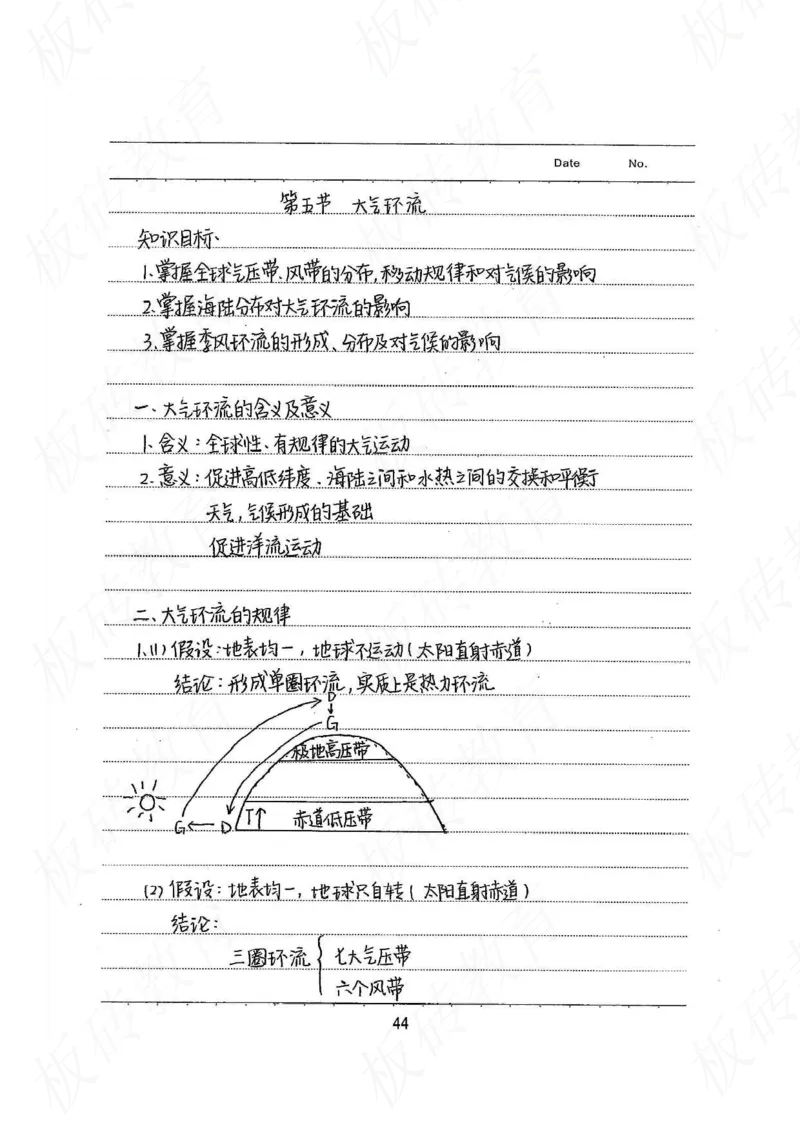 Date No.
第五节 大气环流
知识目标:
1.掌握全球气压带、风带的分布,移动规律和对气候的影响
2.掌握海陆分布对大气环流的影响
3.掌握季风环流的形成、分布及对气候的影响
一、大气环流的含义及意义
1.含义:全球性、有规律的大气运动
2.意义:促进高低纬度、海陆之间和水热之间的交换和平衡
天气,气候形成的基础
促进洋流运动
二、大气环流的规律
1.(1)假设:地表均一,地球不运动(太阳直射赤道)
结论:形成单圈环流,实质上是热力环流
D
↓
G
极地高压带
G ← D T↑ 赤道低压带
(2)假设:地表均一,地球只自转(太阳直射赤道)
结论:
三圈环流 { 七大气压带
六个风带
44
板砖教育